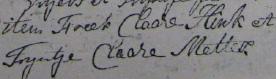 item Freek Claare Hink et
Fryntje Claare Metters